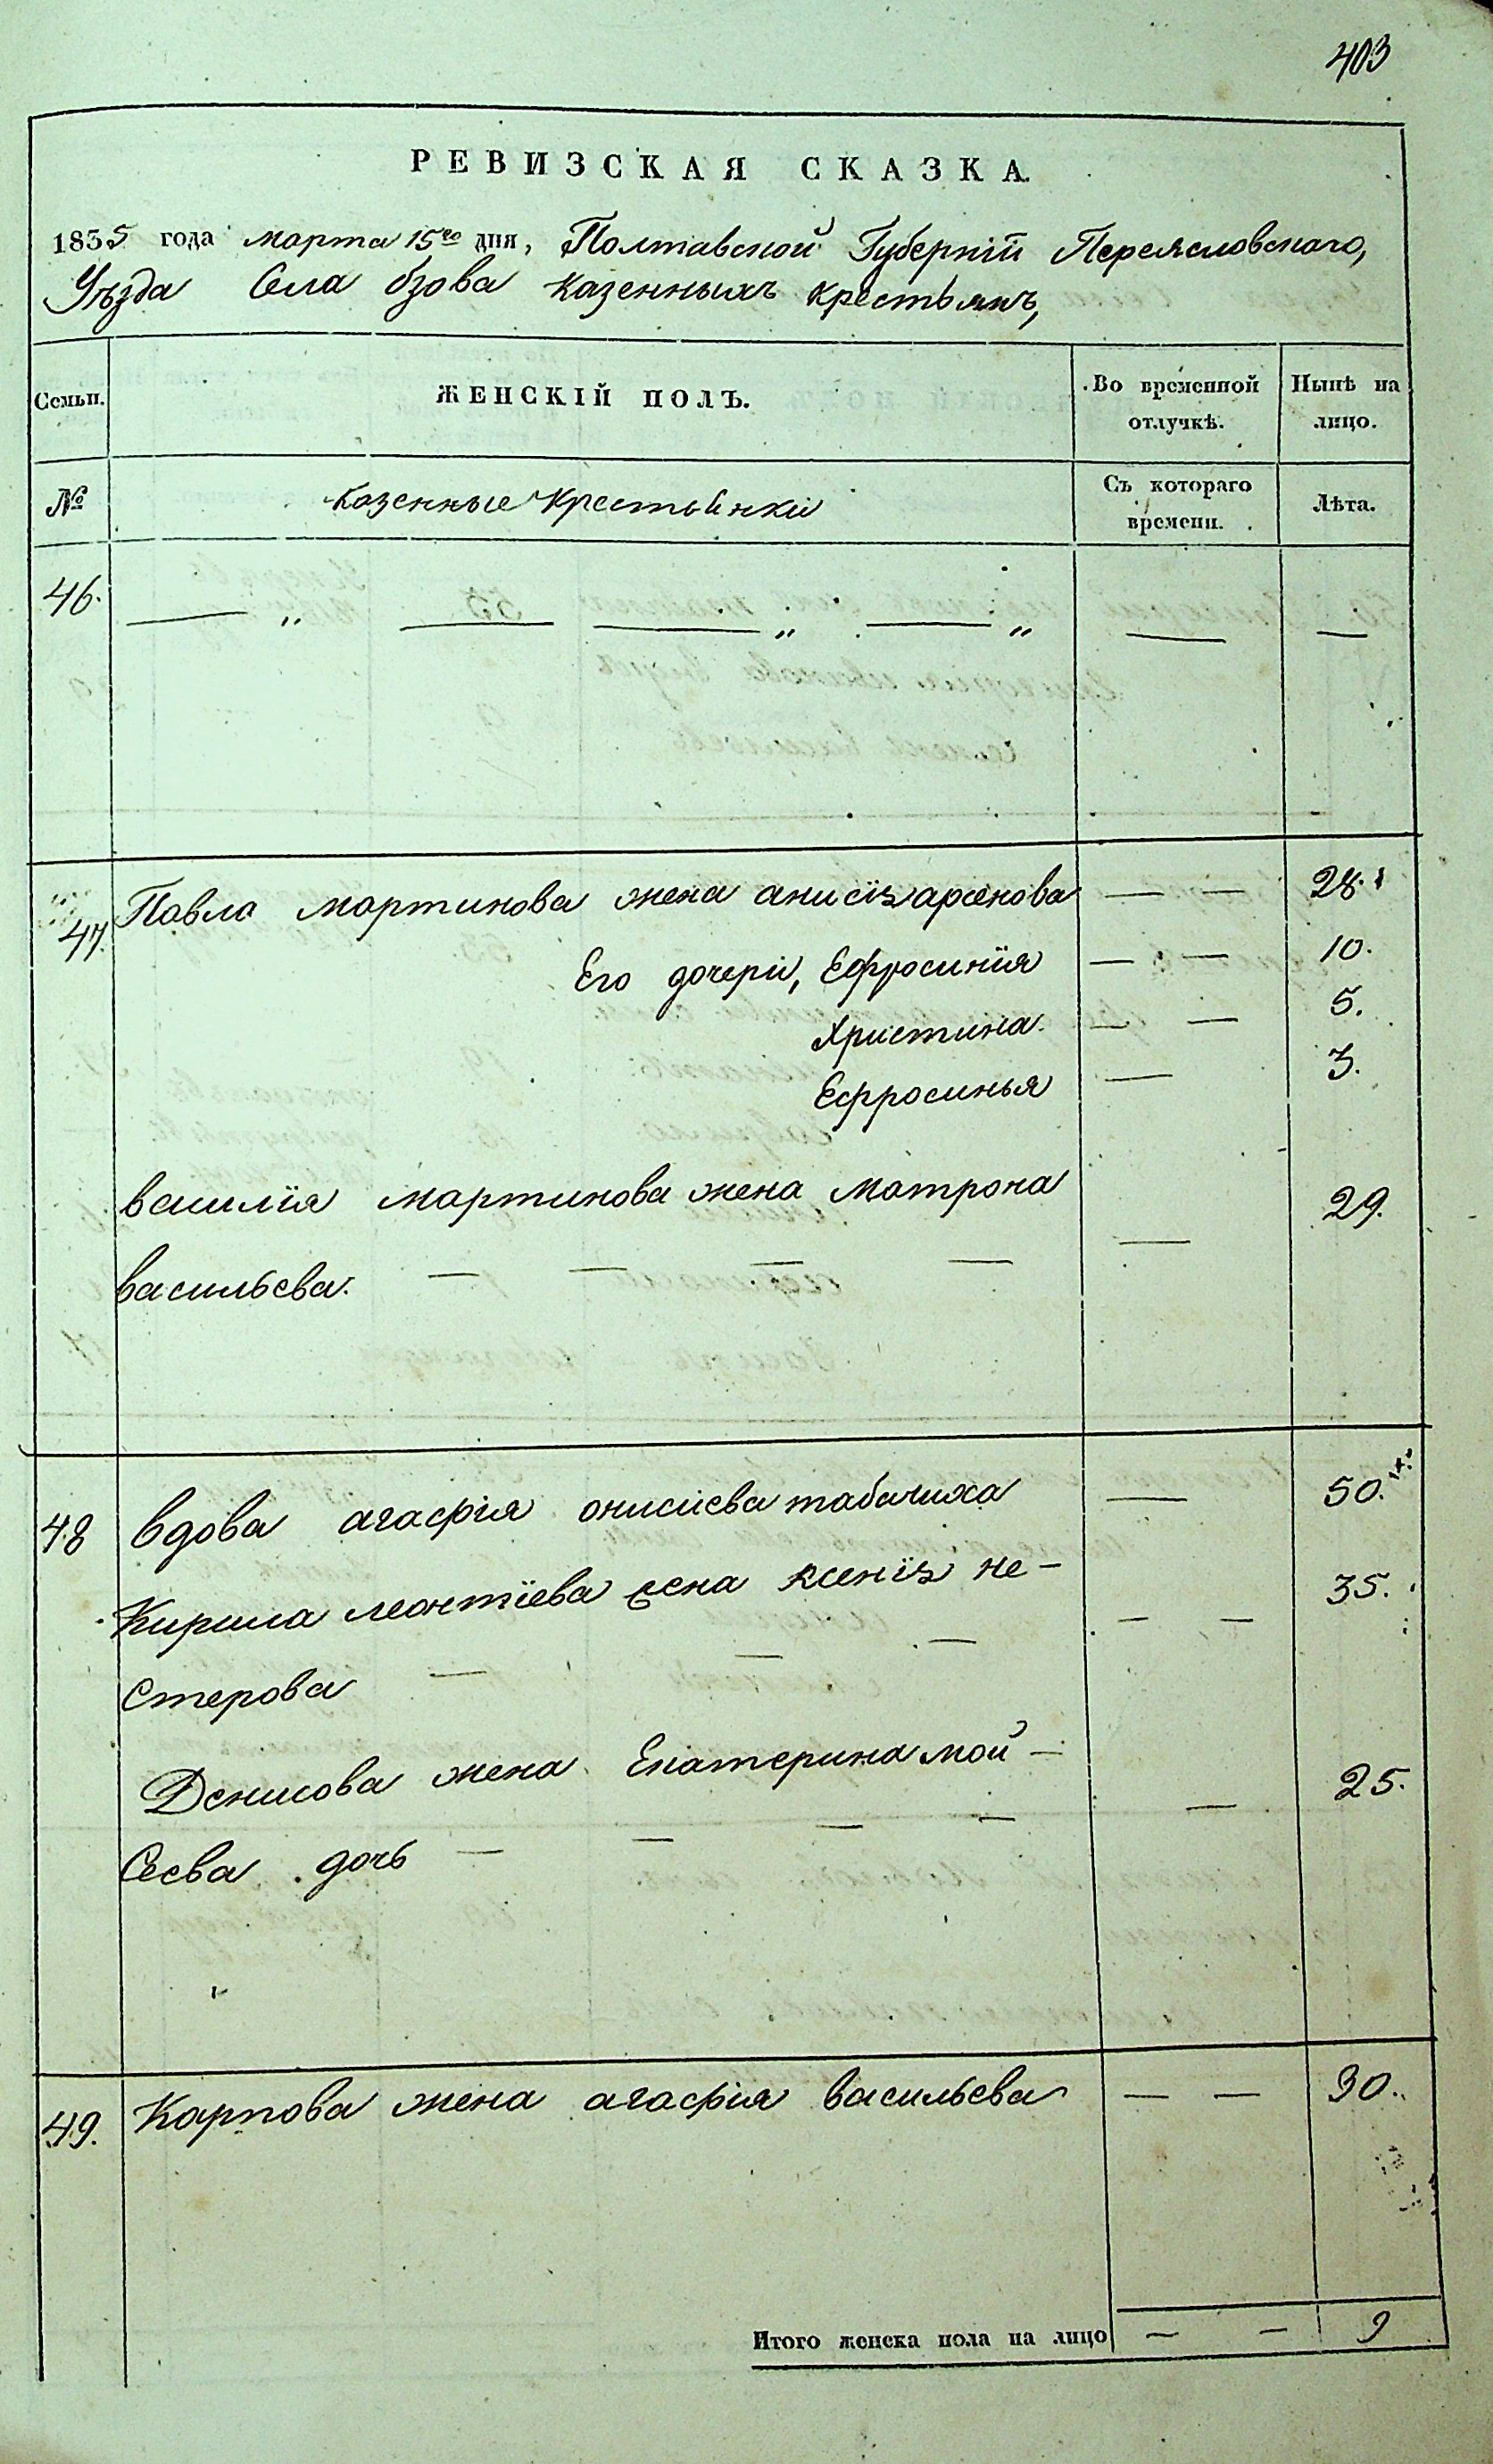 403
РЕВИЗСКАЯ СКАЗКА.
1835 года марта 15го дня, Полтавской Губерніи Переясловскаго,
Уѣзда Села бзова казенныхъ крестьянъ,
Семьи. ЖЕНСКІЙ ПОЛЪ. Во временной отлучкѣ. Нынѣ на лицо.
№ казенные крестьянки Съ котораго времени. Лѣта.
46. — „ — — „ — „ — —
47. Павла мартинова жена анисія арсенова — — 28.
Его дочери, Ефросинія — — 10.
Христина — — 5.
Ефросинья — 3.
василія мартинова жена матрона — 29.
васильева. — — — —
48 вдова агафія онисіева табачиха — 50.
Кирила леонтіева жена ксенія не- — — 35.
стерова — — —
Денисова жена Екатерина мой- — 25.
сеева дочь — — — —
49. Карпова жена агафія васильева — — 30.
Итого женска пола на лицо — — 9